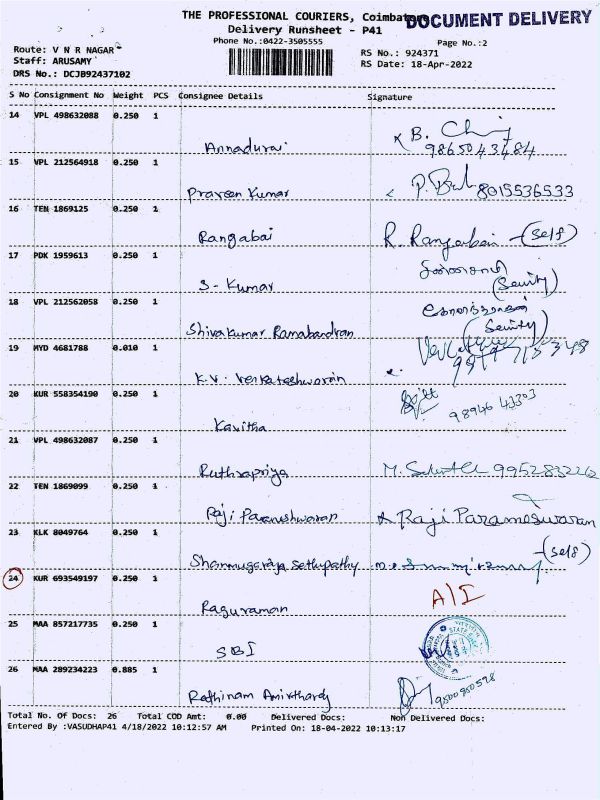 THE PROFESSIONAL COURIERS, Coimbatore
DOCUMENT DELIVERY
Delivery Runsheet - P41
Phone No.:0422-3505555
Page No.:2
Route: V N R NAGAR
RS No.: 924371
Staff: ARUSAMY
RS Date: 18-Apr-2022
DRS No.: DCJB92437102
S No Consignment No Weight PCS Consignee Details Signature
14 VPL 498632088 0.250 1
Annadurai
9865043484
15 VPL 212564918 0.250 1
Praveen Kumar 8015536533
16 TEN 1869125 0.250 1
Rangabai R. Rangabai (self)
17 PDK 1959613 0.250 1
S- Kumar (Seurity)
18 VPL 212562058 0.250 1
Shivakumar Ramabandran (Seurity)
19 MYD 4681788 0.010 1
K.V. Venkateshwaran
20 KUR 558354190 0.250 1
98946 41303
Kavitha
21 VPL 498632087 0.250 1
Ruthrapriya M. 9952832212
22 TEN 1869099 0.250 1
Raji Parameshwaran Raji Parameswaran
23 KLK 8049764 0.250 1
(self)
Shanmugaraja Sethupathy
24 KUR 693549197 0.250 1
A/I
Raguraman
25 MAA 857217735 0.250 1
SBI
26 MAA 289234223 0.885 1
Rathinam Amirthardy 9500950598
Total No. Of Docs: 26 Total COD Amt: 0.00 Delivered Docs: Non Delivered Docs:
Entered By :VASUDHAP41 4/18/2022 10:12:57 AM Printed On: 18-04-2022 10:13:17